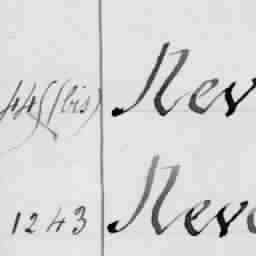 (bis) Nev
1243 Neve